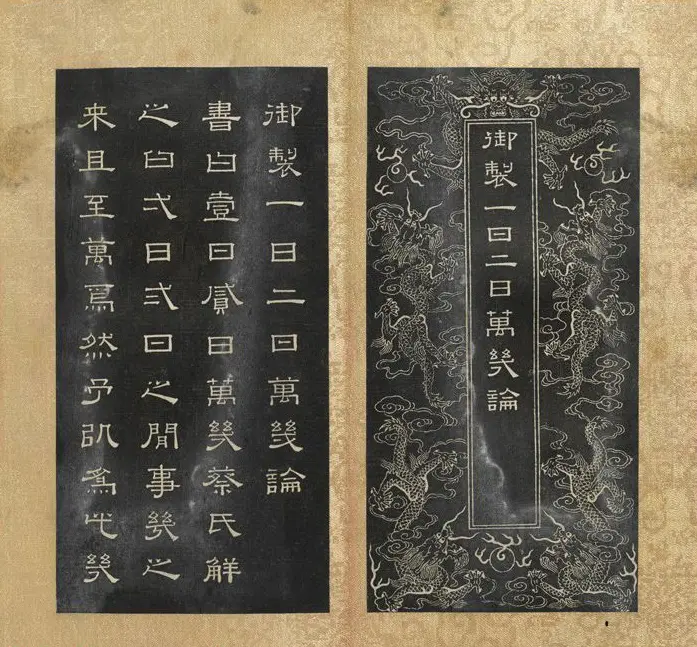 御製一日二日萬幾論
御製一日二日萬幾論
書曰壹日貳日萬幾蔡氏解
之曰弌日弍日之閒事幾之
来且至萬焉然予㕥為此幾